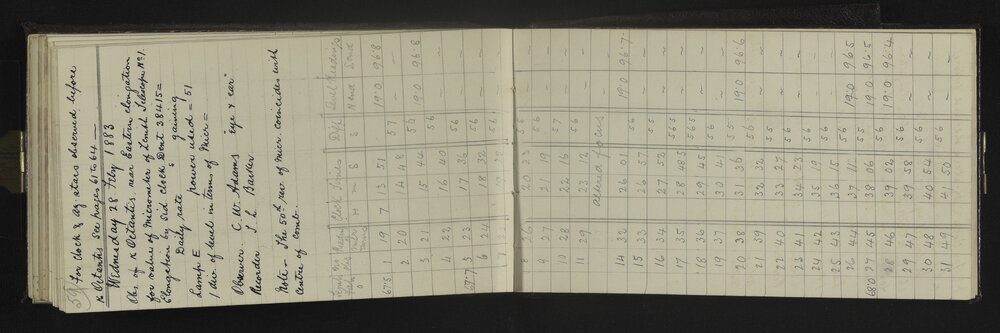 For clock & az stars observed before
κ Octantis see pages 61 to 64 —
Wednesday 28 Feby 1883
Obs. of κ Octantis near Eastern elongation
for value of Micrometer of Zenith Telescope No 1.
Elongation by Sid. clock Dent 38415 =
Daily rate gaining
Lamp E Power used = 151
1 div. of level in terms of Micr =
Observer C. W. Adams "eye & ear"
Recorder
Note — The 50th rev of micr. coincides with
centre of comb.
67.5 1 19 7 13 51 57 19.0 96.8
2 20 14 48 56 ~ ~
3 21 15 44 56 19.0 96.8
4 22 16 40 56 ~ ~
67.7 5 23 17 36 56 ~ ~
6 24 18 32 56 ~ ~
8 26 20 23 55 ~ ~
9 27 21 19 56 ~ ~
10 28 22 16 57 ~ ~
11 29 23 12 56 ~ ~
14 32 26 01 19.0 96.7
15 33 26 57 56 ~ ~
16 34 27 52 55 ~ ~
17 35 28 48.5 56.5 ~ ~
18 36 29 45 56.5 ~ ~
19 37 30 41 56 ~ ~
20 38 31 36 55 19.0 96.6
21 39 32 32 56 ~ ~
22 40 33 27 55 ~ ~
23 41 34 23 56 ~ ~
24 42 35 19 56 ~ ~
25 43 36 15 56 ~ ~
26 44 37 11 56 19.0 96.5
68.0 27 45 38 06 55 19.0 96.5
28 46 39 02 56 19.0 96.4
29 47 39 58 56 ~ ~
30 48 40 54 56 ~ ~
31 49 41 50 56 ~ ~